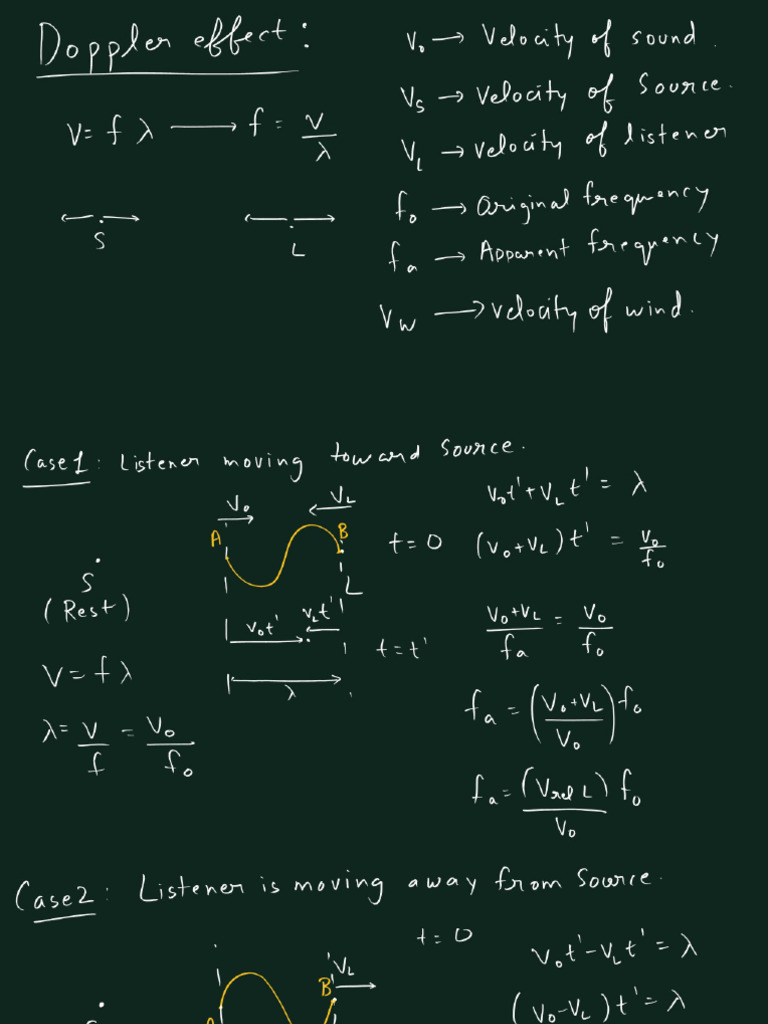 Doppler effect:
V = f λ ⟶ f = V/λ
S
L
V₀ → Velocity of sound.
V_S → Velocity of Source.
V_L → Velocity of listener
f₀ → Original frequency
f_a → Apparent frequency
V_W → Velocity of wind.
Case 1: Listener moving toward Source.
V₀
V_L
A
B
t = 0
S
(Rest)
L
V₀t'
V_Lt'
t = t'
λ
V = f λ
λ = V/f = V₀/f₀
V₀t' + V_L t' = λ
(V₀+V_L) t' = V₀/f₀
V₀+V_L/f_a = V₀/f₀
f_a = (V₀+V_L/V₀) f₀
f_a = (V_rel L)/V₀ f₀
Case 2: Listener is moving away from Source.
t = 0
V_L
B
V₀t' - V_Lt' = λ
(V₀-V_L) t' = λ